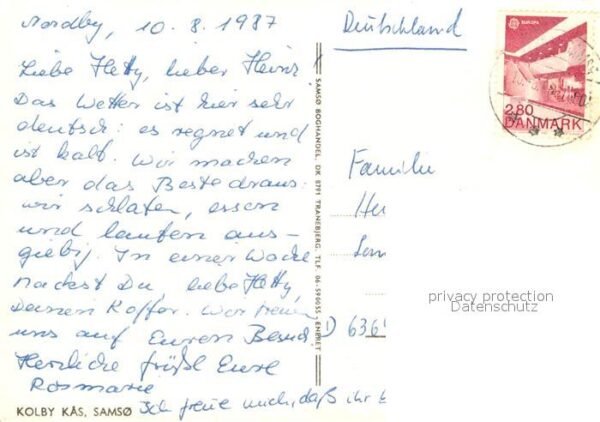 Nordby, 10.8.1987
Liebe Hetty, lieber Heinz,
Das Wetter ist hier sehr
deutsch: es regnet und
ist kalt. Wir machen
aber das Beste draus:
wir schlafen, essen
und laufen aus-
giebig. In einer Woche
packst Du, liebe Hetty,
Deinen Koffer. Wir freuen
uns auf Euren Besuch.
Herzliche Grüße Eure
Rosmarie
Ich freue mich, daß ihr
KOLBY KÅS, SAMSØ
SAMSØ BOGHANDEL, DK 8791 TRANEBJERG, TLF. 06-590055 - ENERET
Deutschland
EUROPA
2.80
DANMARK
Familie
D 636
privacy protection
Datenschutz